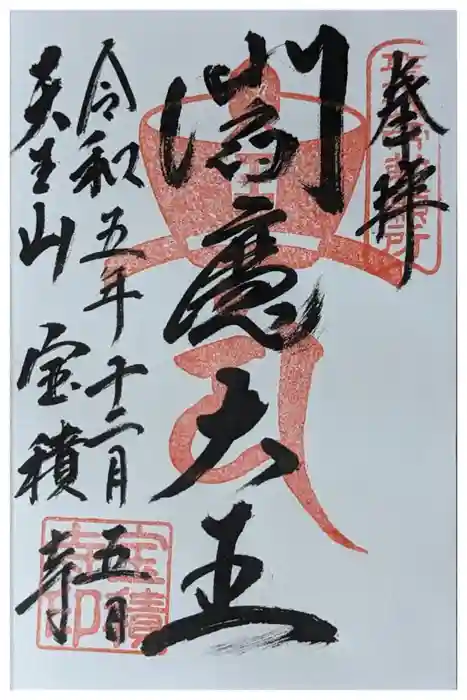 奉拝
閻魔大王
令和五年十二月五日
天王山 宝積寺
宝積
寺印